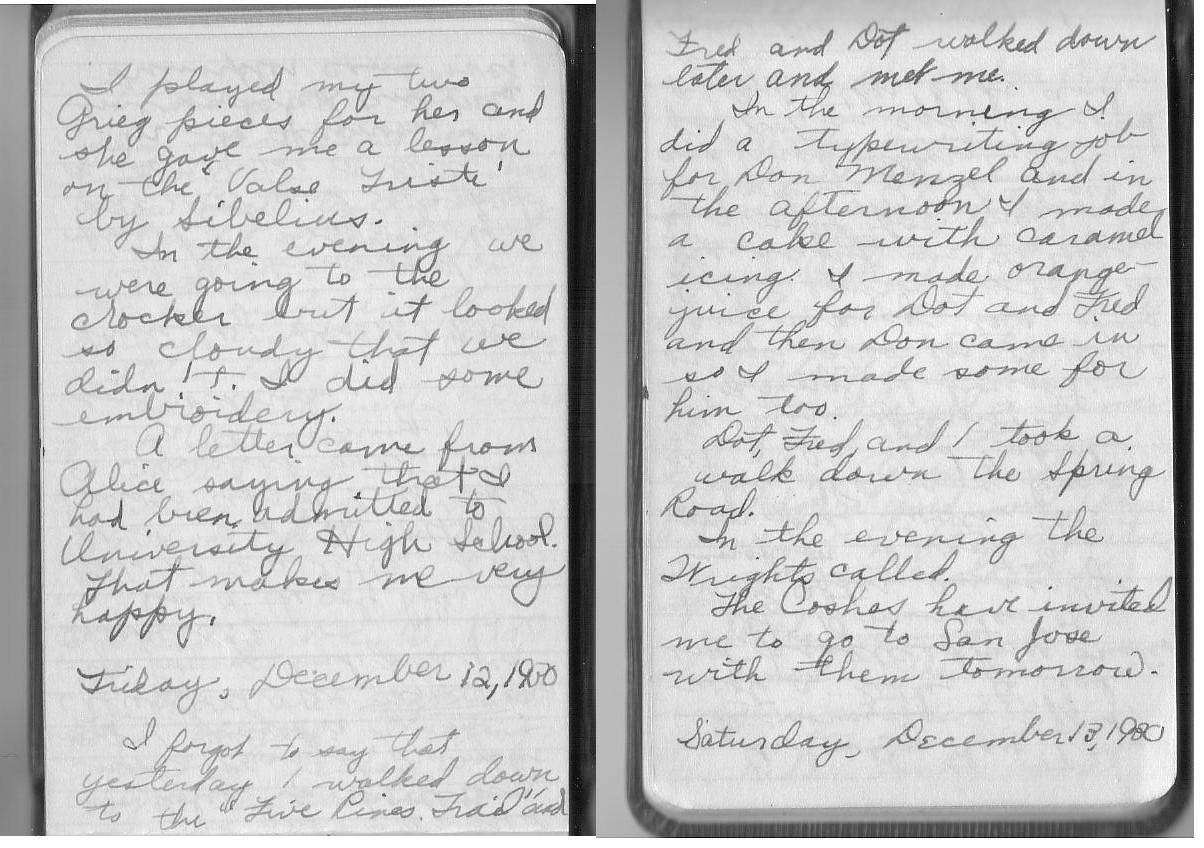 I played my two
Grieg pieces for her and
she gave me a lesson
on the "Valse Triste"
by Sibelius.
In the evening we
were going to the
Crocker but it looked
so cloudy that we
didn't. I did some
embroidery.
A letter came from
Alice saying that I
had been admitted to
University High School.
That makes me very
happy.
Friday, December 12, 1930
I forgot to say that
yesterday I walked down
to the "Five Pines Trail" and
Fred and Dot walked down
later and met me.
In the morning I
did a typewriting job
for Don Menzel and in
the afternoon I made
a cake with caramel
icing. I made orange-
juice for Dot and Fred
and then Don came in
so I made some for
him too.
Dot, Fred, and I took a
walk down the Spring
Road.
In the evening the
Wrights called.
The Coshes have invited
me to go to San Jose
with them tomorrow.
Saturday, December 13, 1930